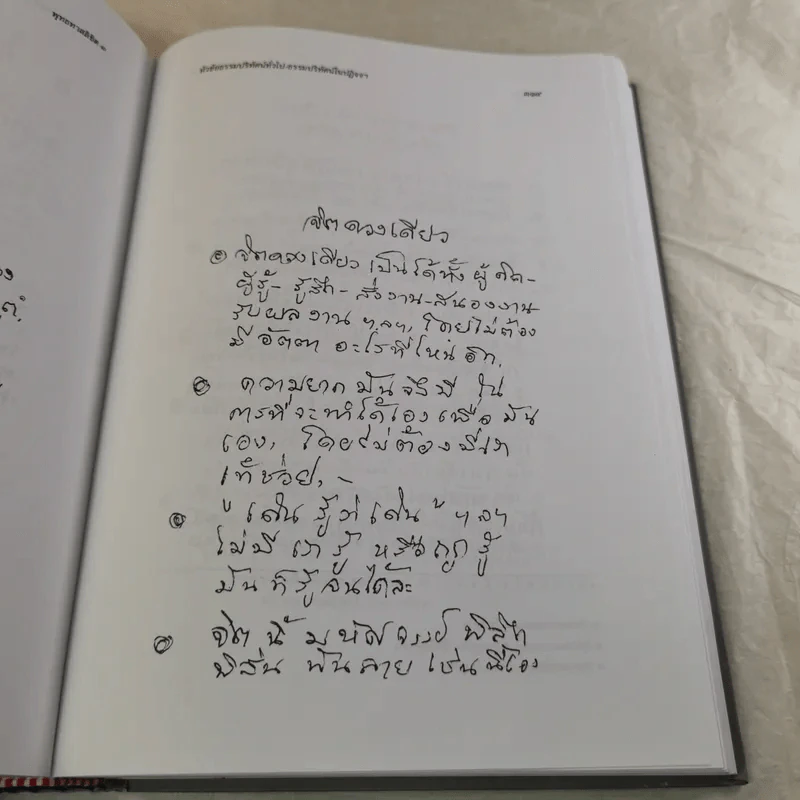 พุทธทาสลิขิต ๓
หัวข้อธรรมปริทัศน์ทั่วไป-ธรรมปริทัศน์ในปฏิจจฯ
จิตดวงเดียว
จิตดวงเดียว เป็นได้ทั้ง ผู้คิด-
ผู้รู้- รู้สึก- สั่งงาน-สนองงาน-
รับผลงาน ฯลฯ, โดยไม่ต้อง
มี อัตตา อะไรที่ไหน อีก.
ความยาก มันจึงมี ใน
การที่จะทำได้เอง เพื่อ มัน
เอง, โดยไม่ต้องมี
ช่วย, -
" เดิน รู้ว่า เดิน " ฯลฯ
ไม่มี เรา รู้ หรือถูก รู้
มัน ก็รู้ จนได้ละ
จิต นี้ มหัศจรรย์ พิลึก
พิลั่น พันลาย เช่นนี้เอง